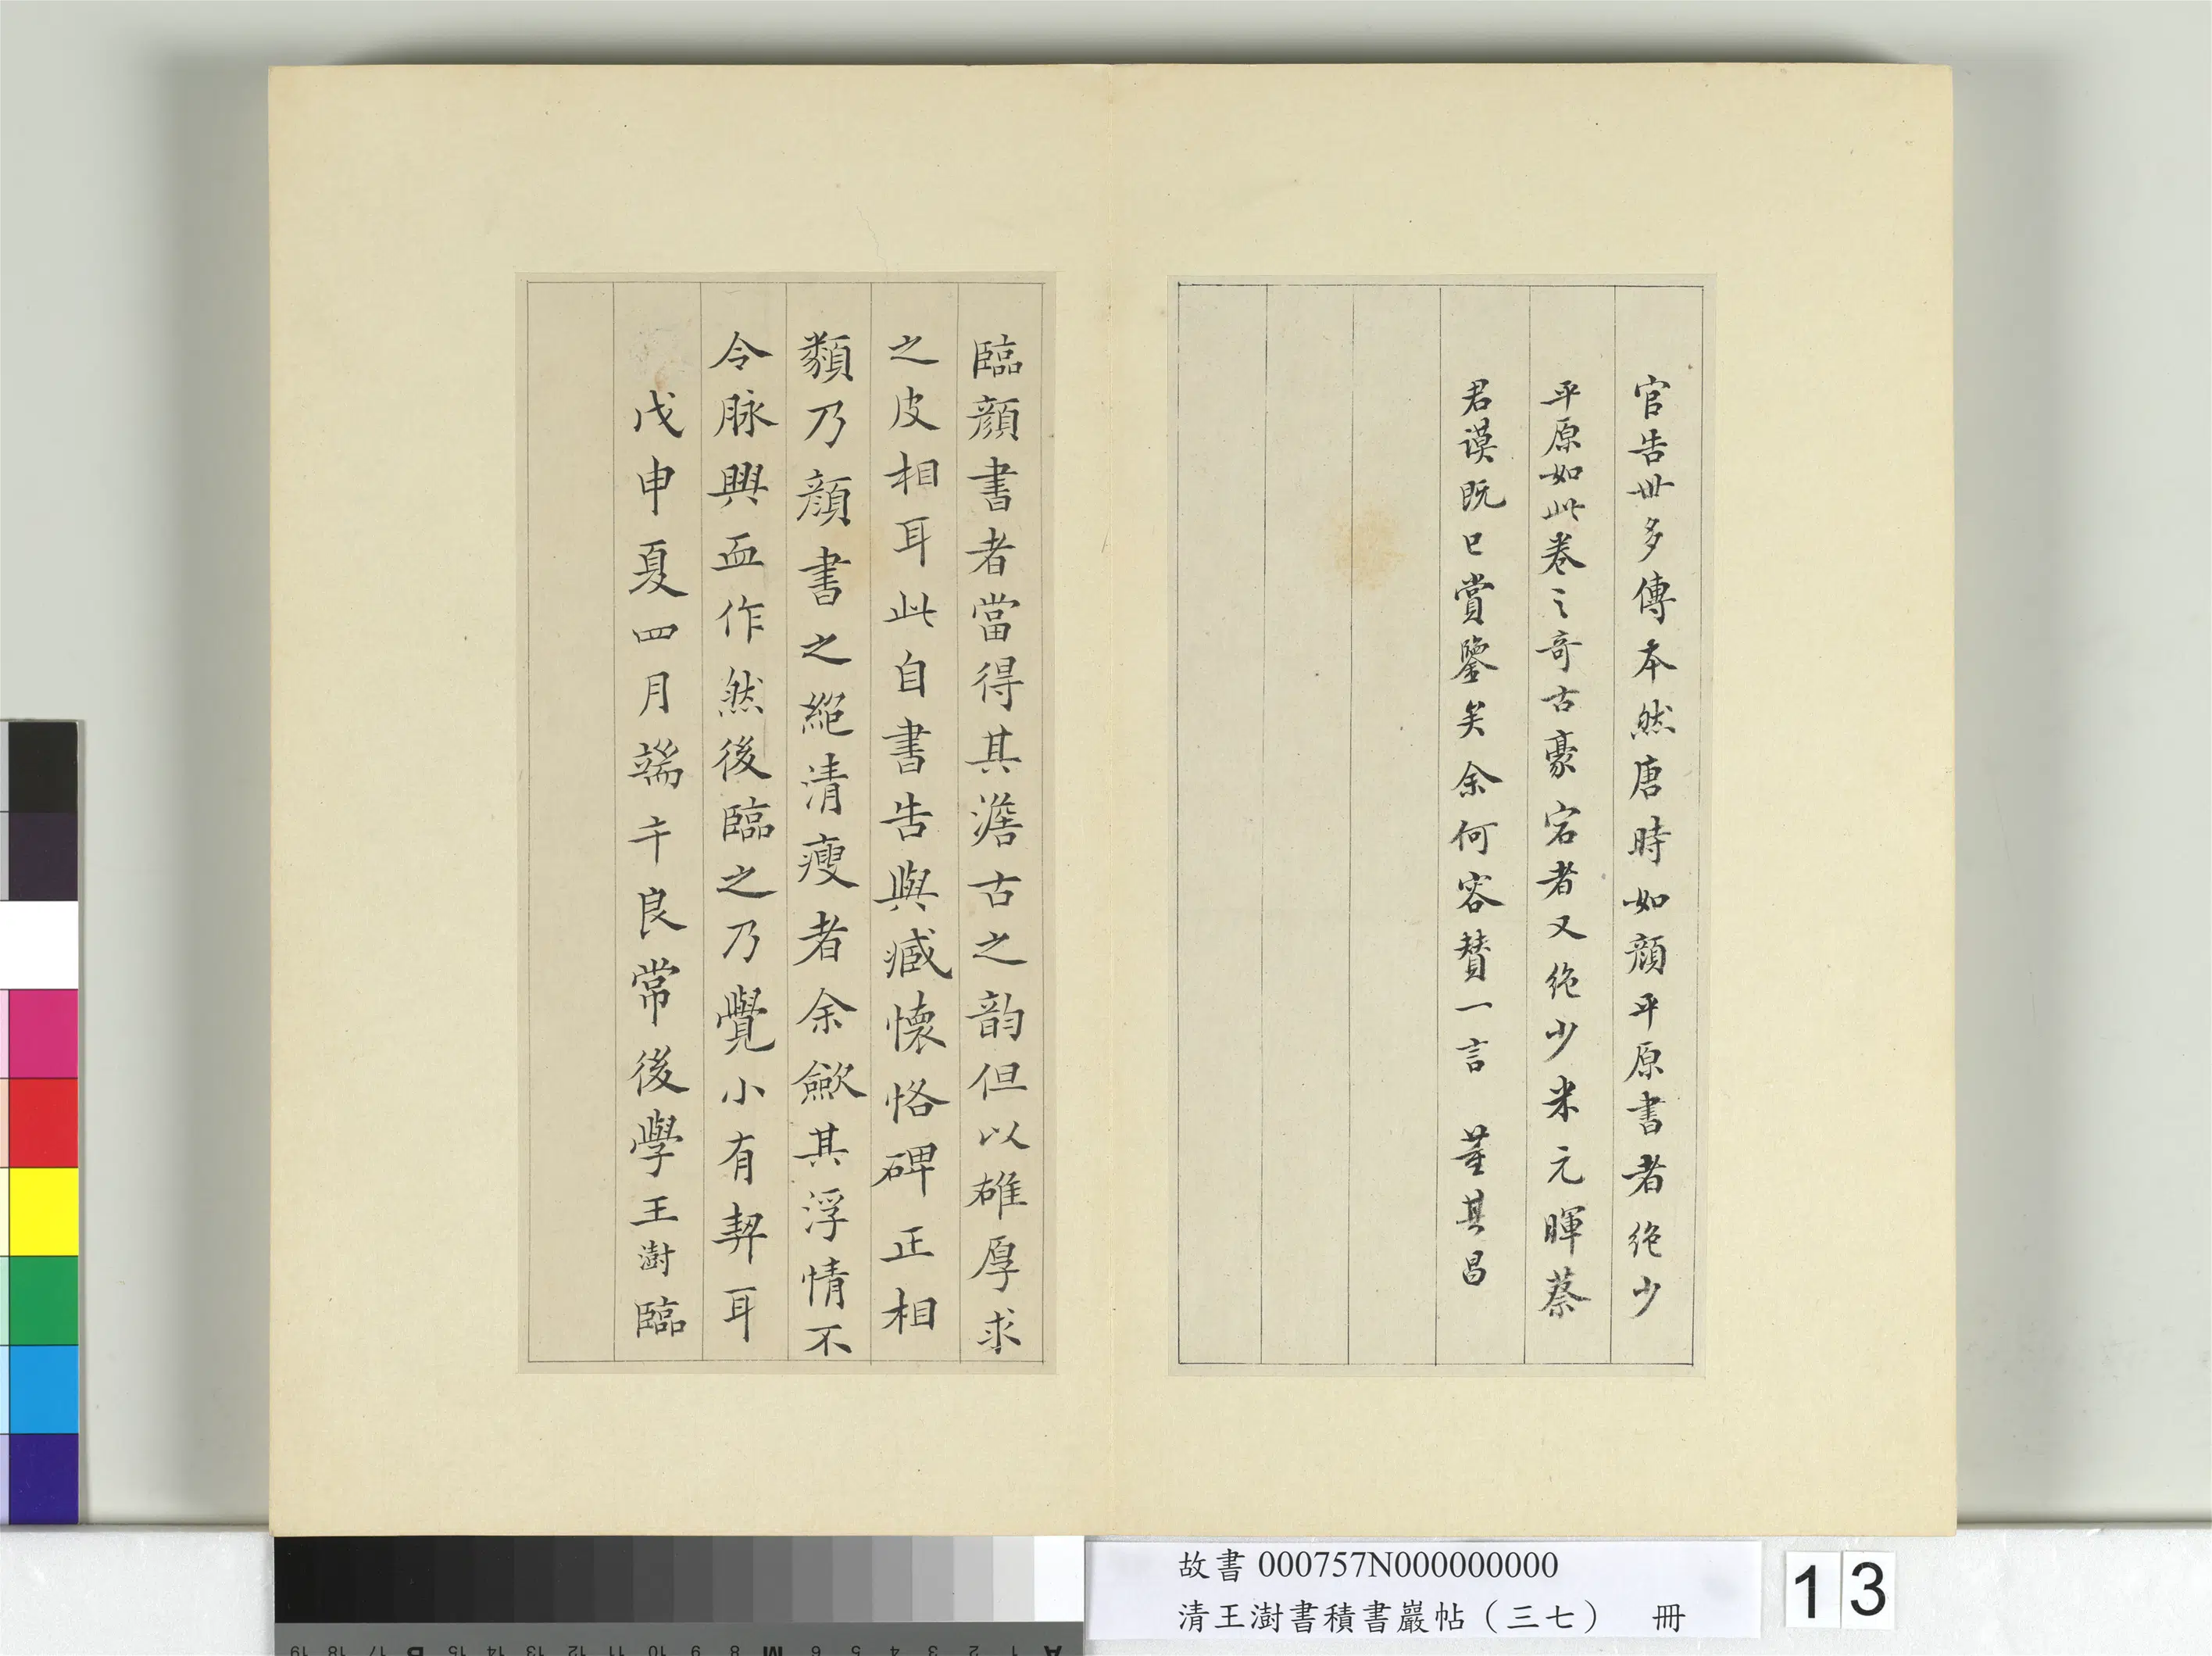 官告世多傳本然唐時如顏平原書者絶少
平原如此卷之奇古豪宕者又絶少米元暉蔡
君謨既已賞鑒矣余何容賛一言 董其昌
臨顏書者當得其澹古之韵但以雄厚求
之皮相耳此自書告與臧懷恪碑正相
類乃顏書之絕清瘦者余斂其浮情不
令脉興血作然後臨之乃覺小有契耳
戊申夏四月端午良常後學王澍臨
故書 000757N000000000
清王澍書積書巖帖（三七） 冊
13
A 1 2 3 4 5 6 M 8 9 10 11 12 13 14 15 B 17 18 19